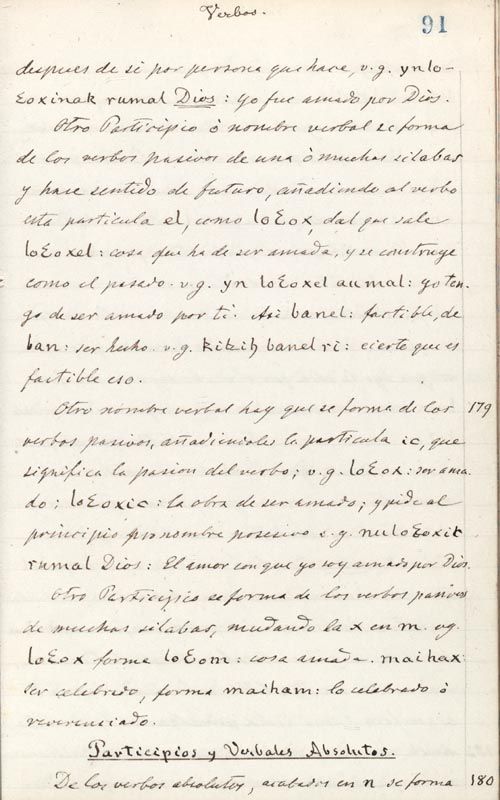 Verbos.
91
despues de si por persona que hace, v.g. yn lo-
Ɛoxinak rumal Dios: yo fue amado por Dios.
Otro Participio ò nombre verbal se forma
de los verbos pasivos de una ò muchas silabas
y hace sentido de futuro, añadiendo al verbo
esta particula el, como loƐox, dal que sale
loƐoxel: cosa que ha de ser amada, y se construye
como el pasado. v.g. yn loƐoxel aumal: yo ten-
go de ser amado por ti. Asi banel: factible, de
ban: ser hecho. v.g. kitzih banel ri: cierto que es
factible eso.
Otro nombre verbal hay que se forma de los 179
verbos pasivos, añadiendoles la particula ic, que
significa la pasion del verbo; v.g. loƐox: ser ama
do; loƐoxic: la obra de ser amado; y pide al
principio pronombre posesivo v.g. nuloƐoxic
rumal Dios: El amor con que yo soy amado por Dios.
Otro Participio se forma de los verbos pasivos
de muchas silabas, mudando la x en m. vg.
loƐox forma loƐom: cosa amada. maihax:
ser celebrado, forma maiham: lo celebrado ò
reverenciado.
Participios y Verbales Absolutos.
De los verbos absolutos, acabados en n se forma 180